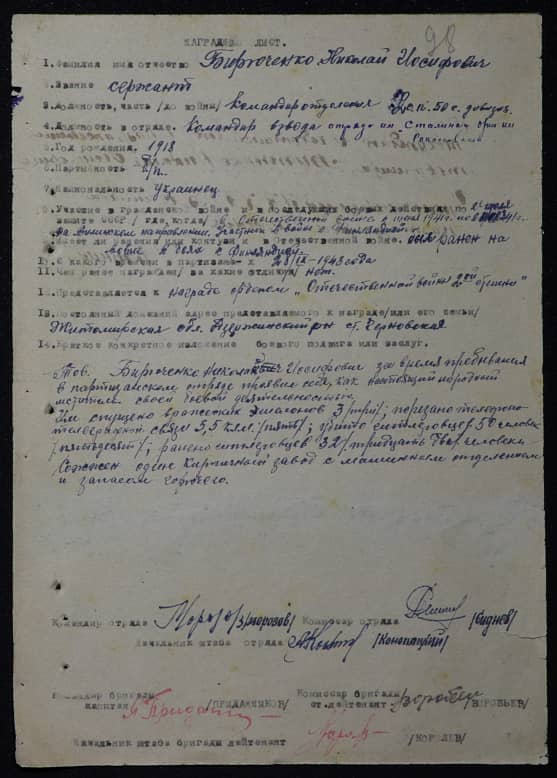 98
НАГРАДНОЙ ЛИСТ.
1. Фамилия имя отчество Бирюченко Николай Иосифович
2. Звание сержант
3. Должность, часть /до войны/ командир отделения с.п. 50 с. дивизи.
4. Должность в отряде. командир взвода отряда им. Сталина бриг им
5. Год рождения. 1918
6. Партийность б/п.
7. Национальность украинец
8. Участие в гражданской войне и в последующих боевых действиях по
защите СССР /где, когда/ в Отечественной войне с июля 1941г. по 1941г.
направлении. Участник войны с Финляндией
9. Имеет ли ранения или контузии в Отечественной войне. был ранен на
в боях с Финляндией
10. С какого времени в партизанах. с 28/IX-1943 года
11. Чем ранее награжден /за какие отличия/ нет.
12. Представляется к награде орденом "Отечественной войны 2ой степени"
13. Постоянный домашний адрес представляемого к награде/или его семьи/
Житомирская обл. Дзержинский р-н ст. Черновская
14. Краткое конкретное изложение боевого подвига или заслуг.
Тов. Бирюченко Николай Иосифович за время пребывания
в партизанском отряде проявил себя, как настоящий народный
мститель своей боевой деятельностью.
Им спущено вражеских эшалонов 3 /три/; порезано телефоно-
телеграфной связи 5,5 клм. /пять/; убито гитлеровцев 50 человек
/пятьдесят/; ранено гитлеровцев 32 /тридцать два/ человека
Сожжен один кирпичный завод с машинным отделением
и запасом горючего.
Командир отряда /Морозов/ Комиссар отряда /Руднев/
Начальник штаба отряда /Конопацкий/
Командир бригады Комиссар бригады
капитан /ПРИДАННИКОВ/ ст. лейтенант /ВОРОБЬЕВ/
Начальник штаба бригады лейтенант /КОРОЛЕВ/